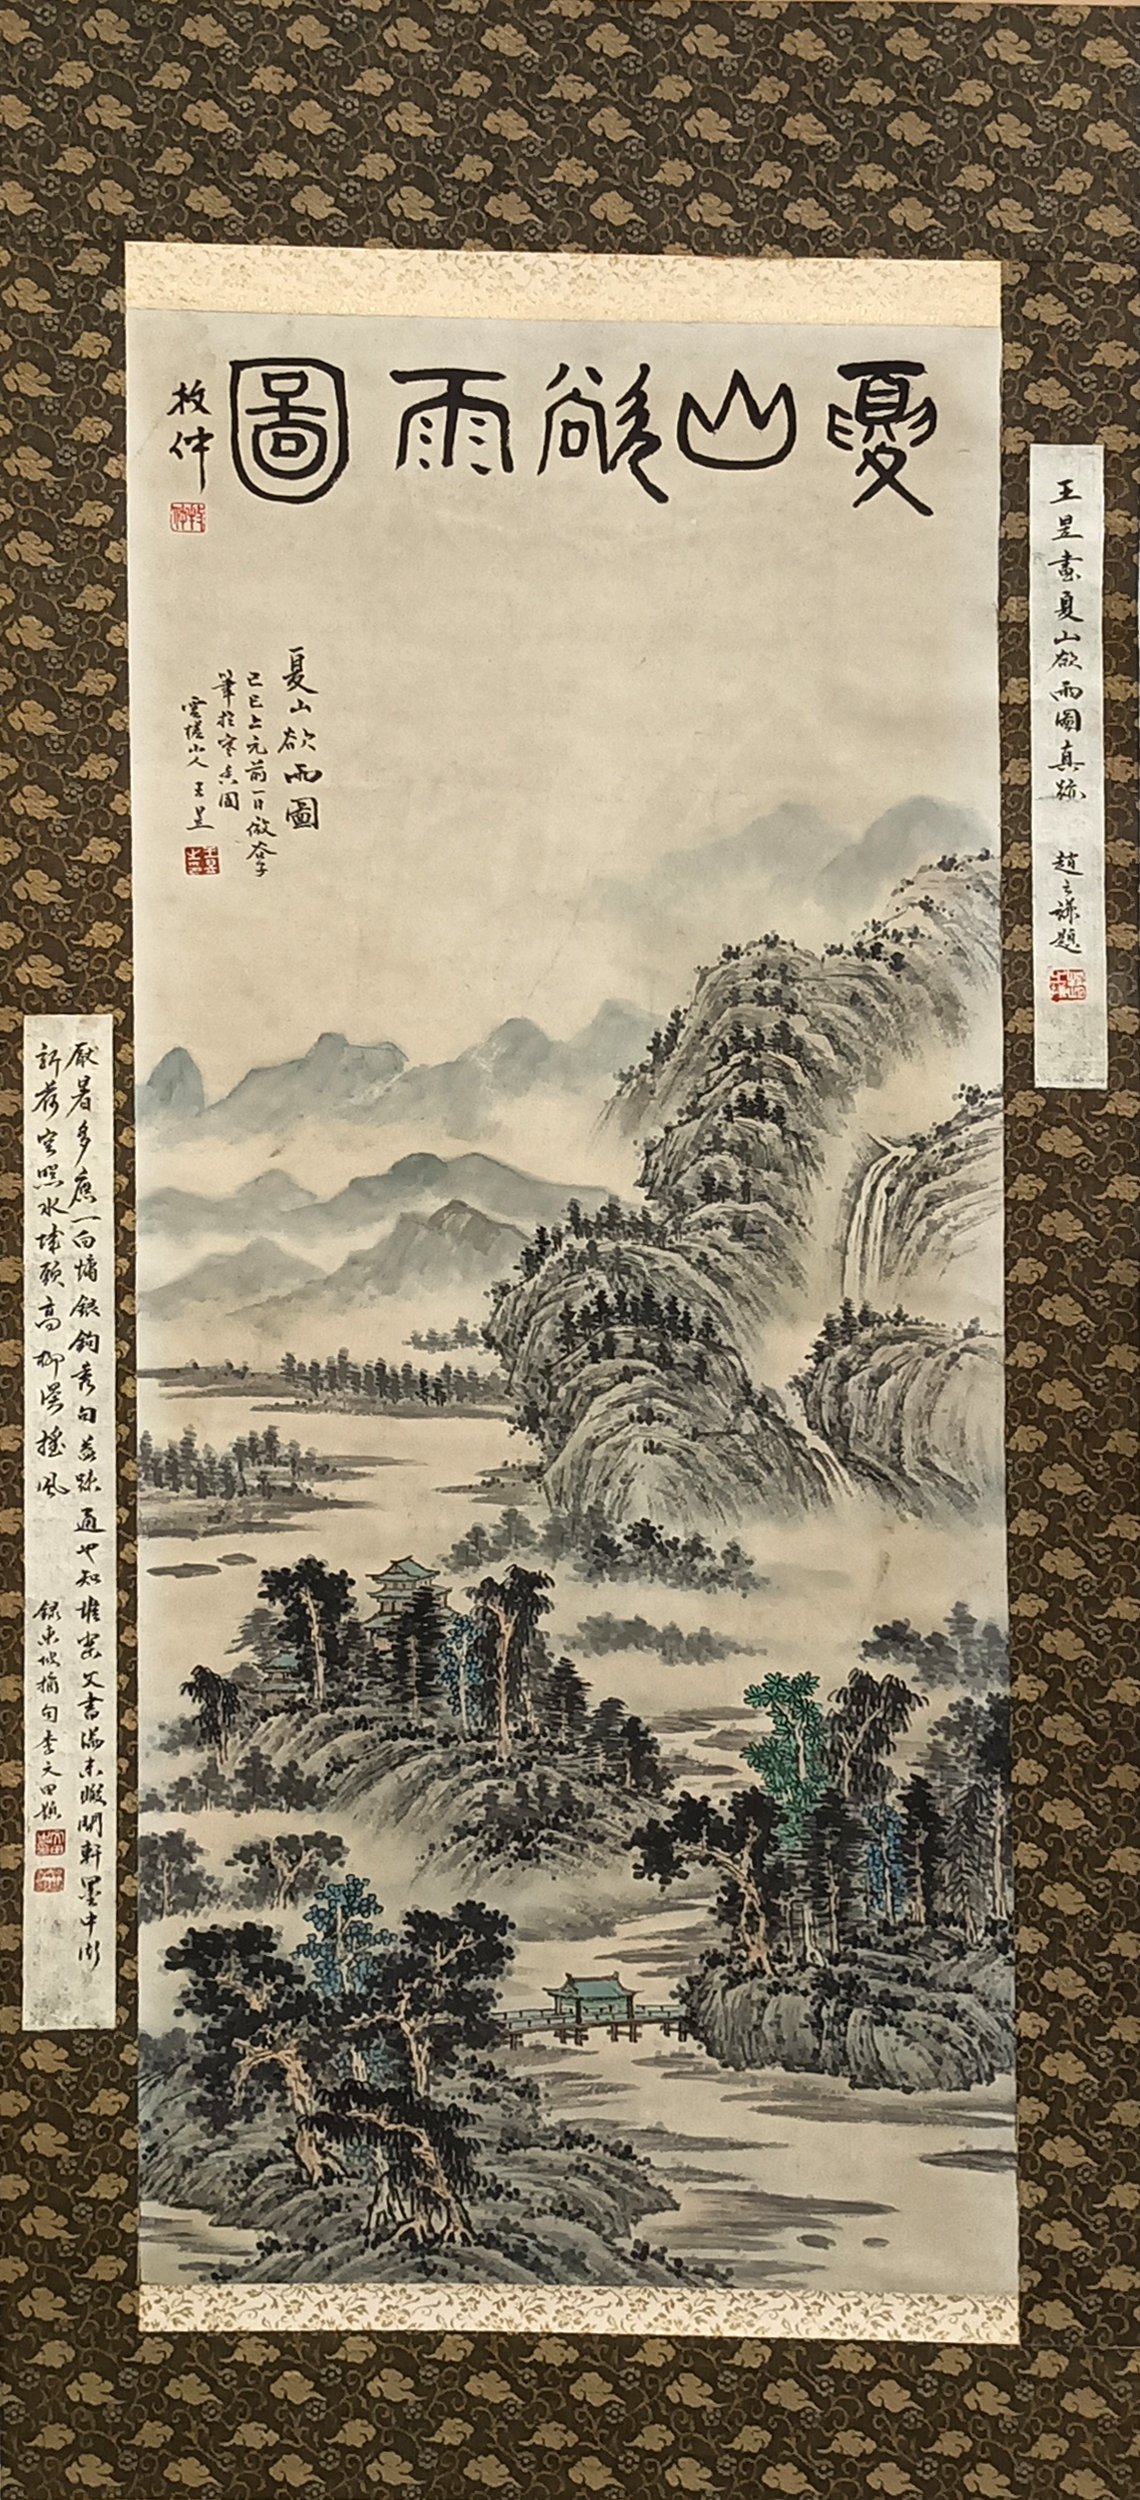 夏山欲雨圖
枚仲
夏山欲雨圖
己巳上元前一日倣
筆於寒香園
雲槎山人王昱
王昱畫夏山欲雨圖真跡
趙之謙題
厭暑多應一向慵銀鉤秀句益疎通也知堆案文書滿未暇開軒墨中
新荷空照水城頭高柳漫搖風
錄東坡摘句李文田題